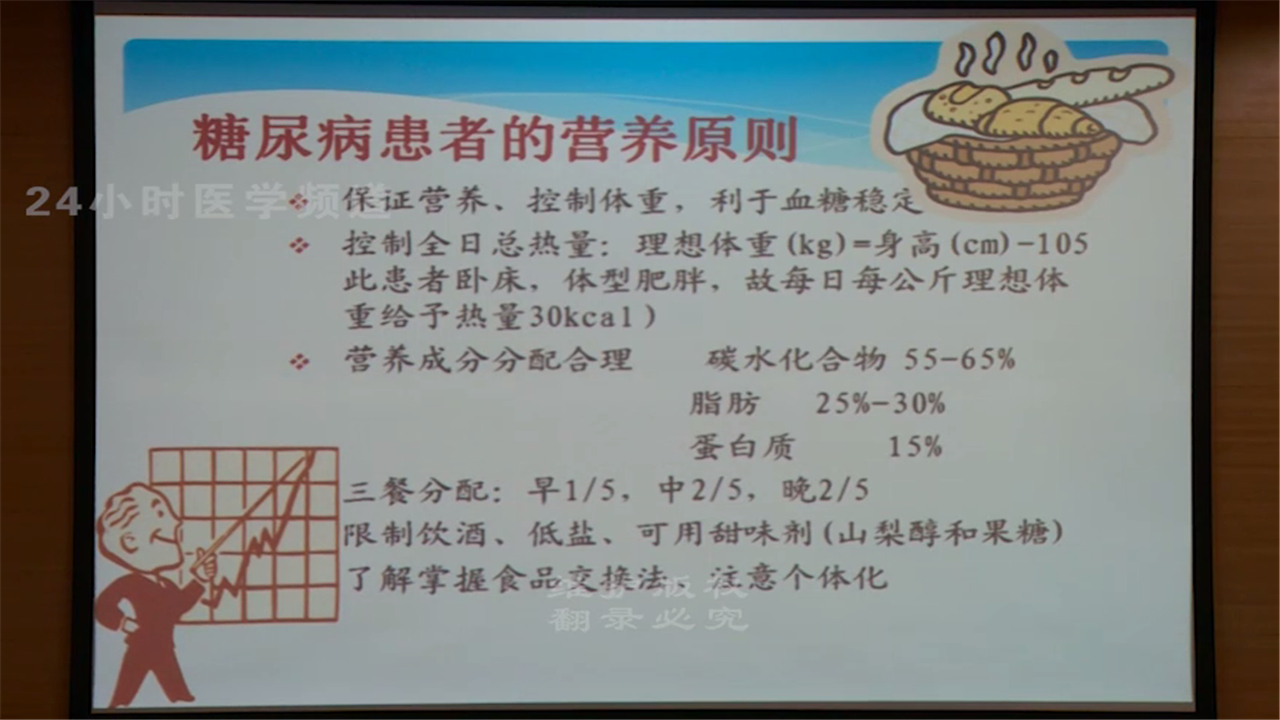 糖尿病患者的营养原则
24小时医学频道
保证营养、控制体重，利于血糖稳定
控制全日总热量：理想体重(kg)=身高(cm)-105
此患者卧床，体型肥胖，故每日每公斤理想体
重给予热量30kcal)
营养成分分配合理 碳水化合物 55-65%
脂肪 25%-30%
蛋白质 15%
三餐分配：早1/5，中2/5，晚2/5
限制饮酒、低盐、可用甜味剂(山梨醇和果糖)
了解掌握食品交换法，注意个体化
维护版权
翻录必究